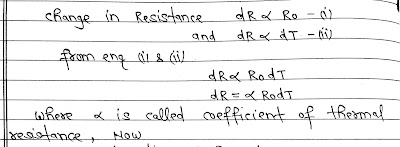 change in Resistance dR ∝ Ro – (i)
and dR ∝ dT – (ii)
from enq (i) & (ii)
dR ∝ RodT
dR = ∝ RodT
where ∝ is called coefficient of thermal
resistance, Now